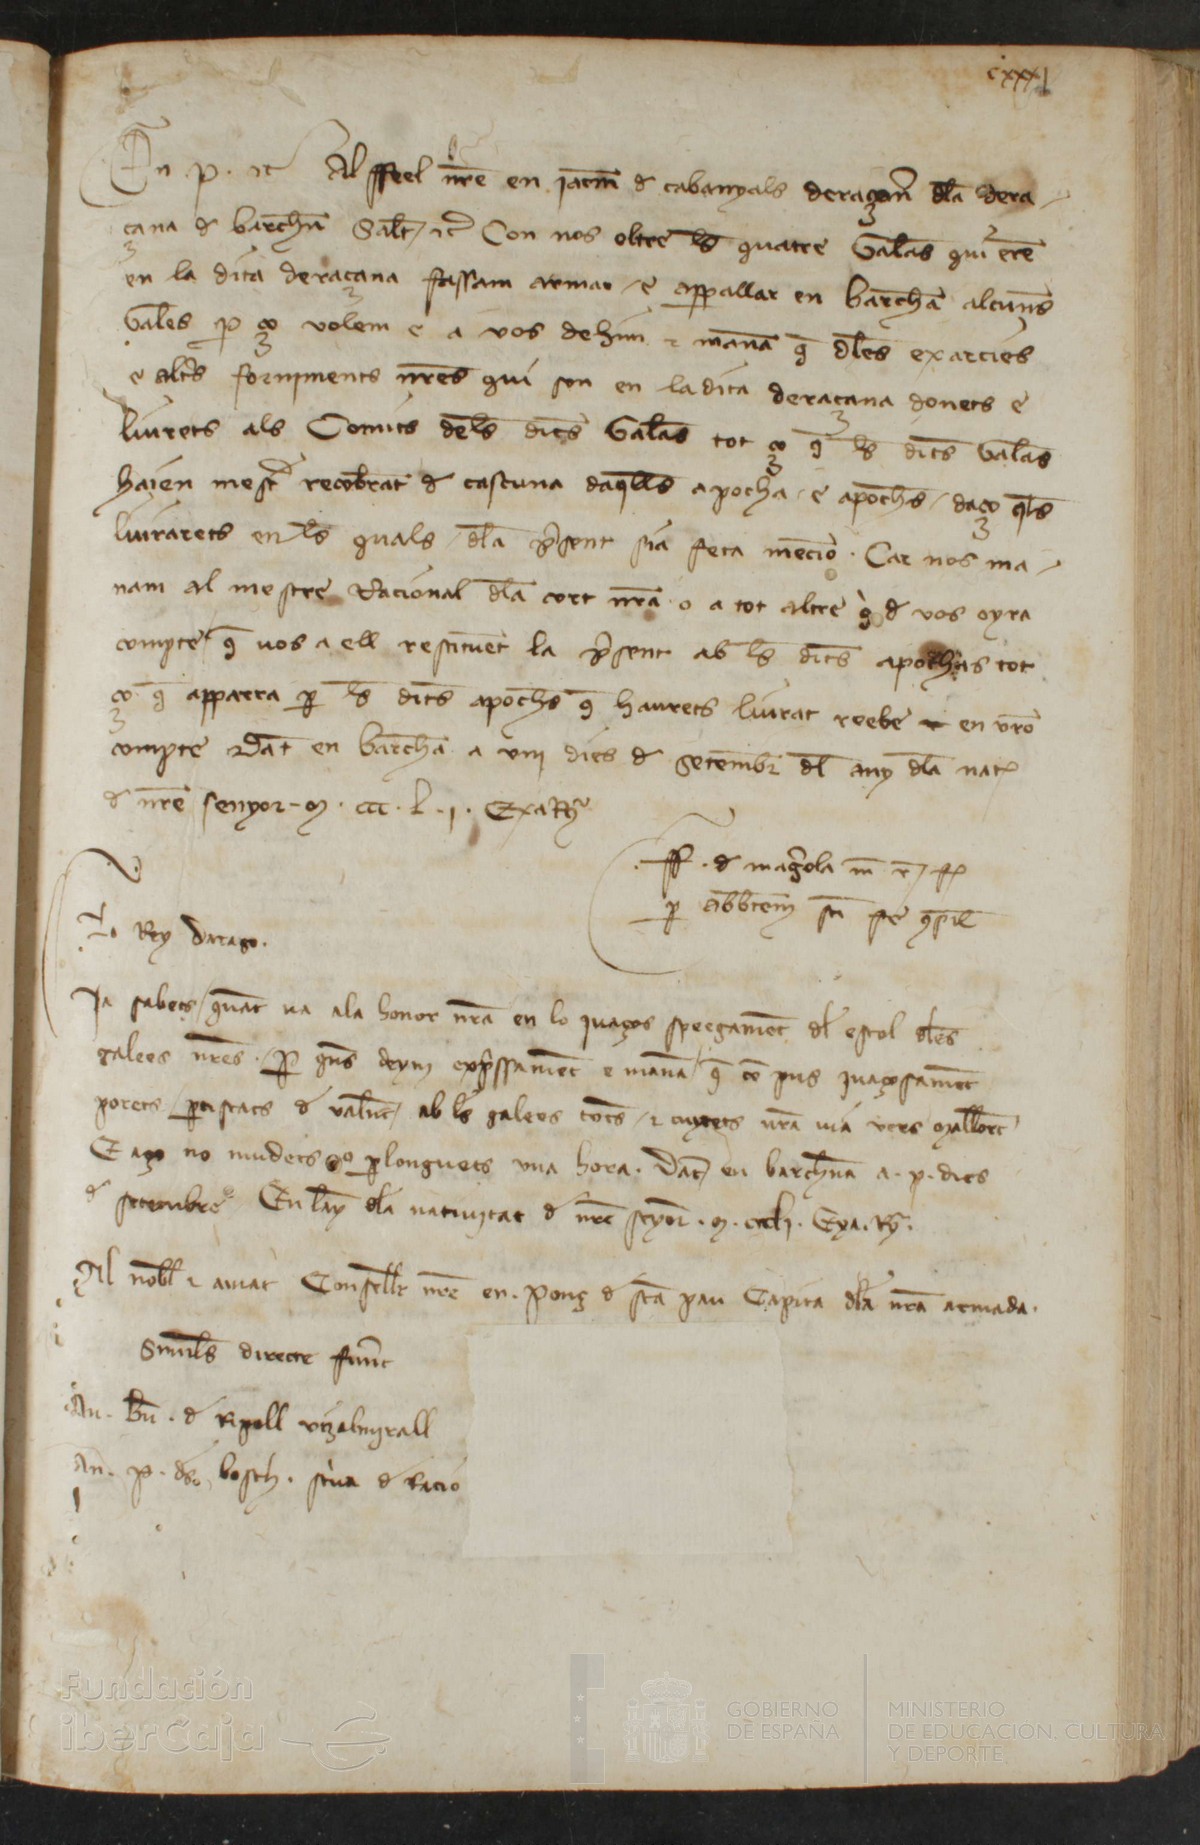 cxxxj
En .P. etc Al ffeel nre en Jacm de cabanyals deraçan dla dera
çana de barchna Salt etc Con nos oltre ls quatre Galeas qui eren
en la dita deraçana fassam armar e appallar en barchna alcunes
Galees p ço volem e a vos dehim e manam q dles exarcies
e altrs forniments nres qui son en la dita deraçana donets e
liurets als Comits dels dits Galeas tot ço q ls dits Galeas
haien mest recobrat de cascuna daqlls apocha e apoches daço qls
liurarets en ls quals dla psent sia feta mencio. Car nos ma
nam al mestre Racional dla cort nra o a tot altre q de vos oyra
compte q vos a ell restituent la psent ab ls dits apochas tot
ço q apparra p ls dits apoches q haurets liurat reebe en vro
compte Dat en barchna a viii dies de Setembr dl any dla nat
de nre senyor M.CCC.L.j. Exa Ry
ff. de magrola
p abbtem
Lo Rey Darago.
Ja sabets quant va ala honor nra en lo ivaços speegament dl estol dles
galees nres. P quns deym expssament e manam q com pus ivaçosament
porets partiscats de Valnc ab ls galees totes e cuytets nra via vers Mallorc
E aço no mudets no plonguets vna hora. Dat en barchna a .x. dies
de setembre En lay dla nativitat de nre seyor .M.cccli. Exa. Ry.
Al nobl e amat Consellr nre en Ponç de sta pau Capita dla nra armada.
Similes directe funt
An. Bn. de Ripoll viçalmirall
An. P. des bosch. scriva de Racio
Fundación
iberCaja
GOBIERNO
DE ESPAÑA
MINISTERIO
DE EDUCACIÓN, CULTURA
Y DEPORTE